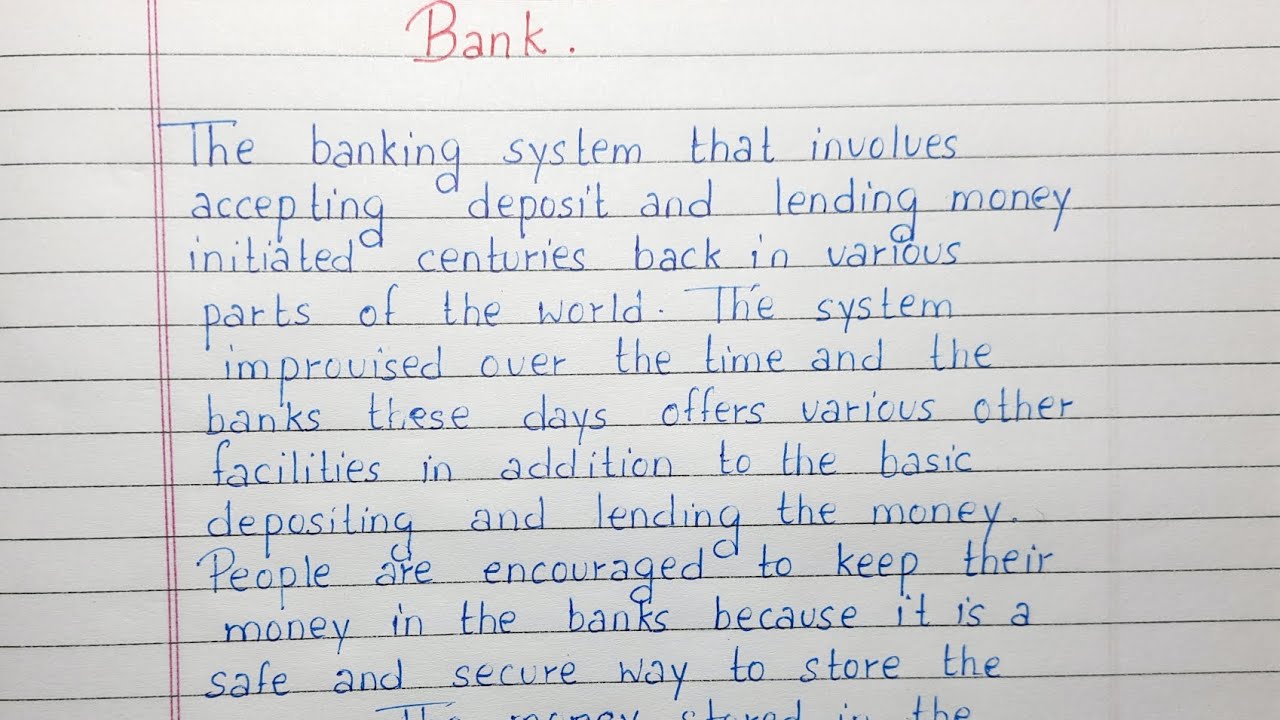 Bank.
The banking system that involves
accepting deposit and lending money
initiated centuries back in various
parts of the world. The system
improvised over the time and the
banks these days offers various other
facilities in addition to the basic
depositing and lending the money.
People are encouraged to keep their
money in the banks because it is a
safe and secure way to store the
The money stored in the